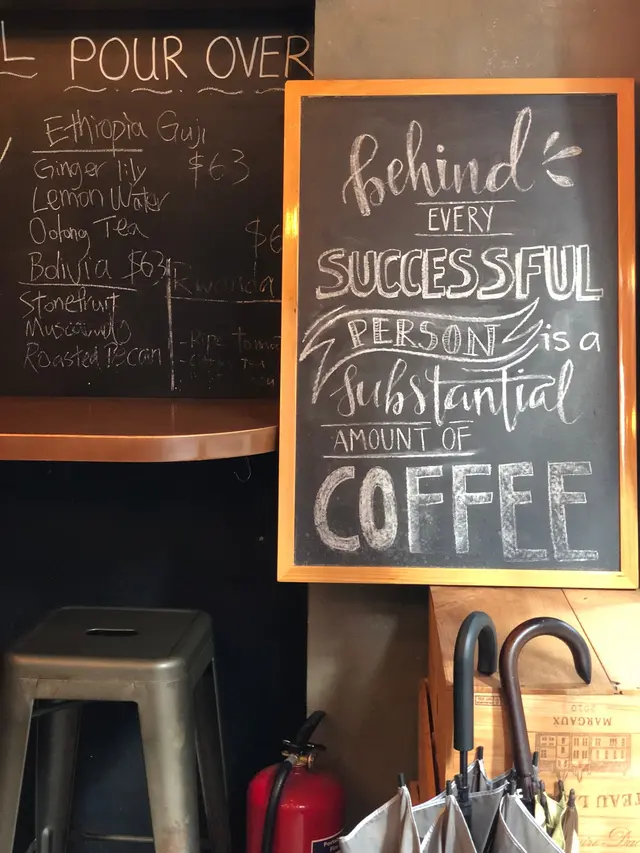 POUR OVER
Ethiopia Guji
Ginger lily $63
Lemon Water
Oolong Tea
Bolivia $63
Stonefruit
Roasted Pecan
Rwanda
behind
EVERY
SUCCESSFUL
PERSON is a
Substantial
AMOUNT OF
COFFEE
2010
MARGAUX